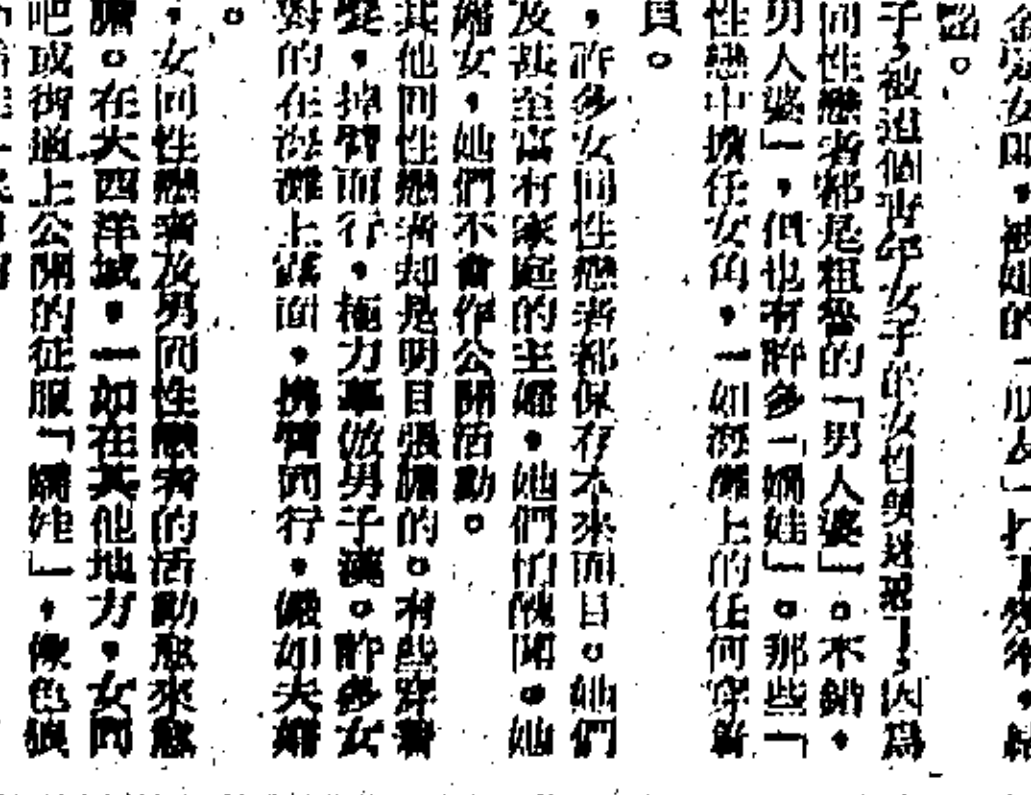 女間,被她的「
路。
子,被這個青年女子的女性
同性戀者都是粗魯的「男人婆」。不錯,
男人婆」,但也有許多「嬌娃」。那些「
性戀中擔任女角,一如海灘上的任何穿着
員。
,許多女同性戀者都保存本來面目。她們
及甚至富有家庭的主婦,她們怕醜聞,她
婦女,她們不會作公開活動。
其他同性戀者却是明目張膽的。有些穿着
髮,掉臂而行,極力摹倣男子漢。許多女
對的在海灘上露面,携臂同行,儼如夫婦
。
,女同性戀者及男同性戀者的活動愈來愈
膽。在大西洋城,一如在其他地方,女同
吧或街道上公開的征服「嬌娃」,像色狼